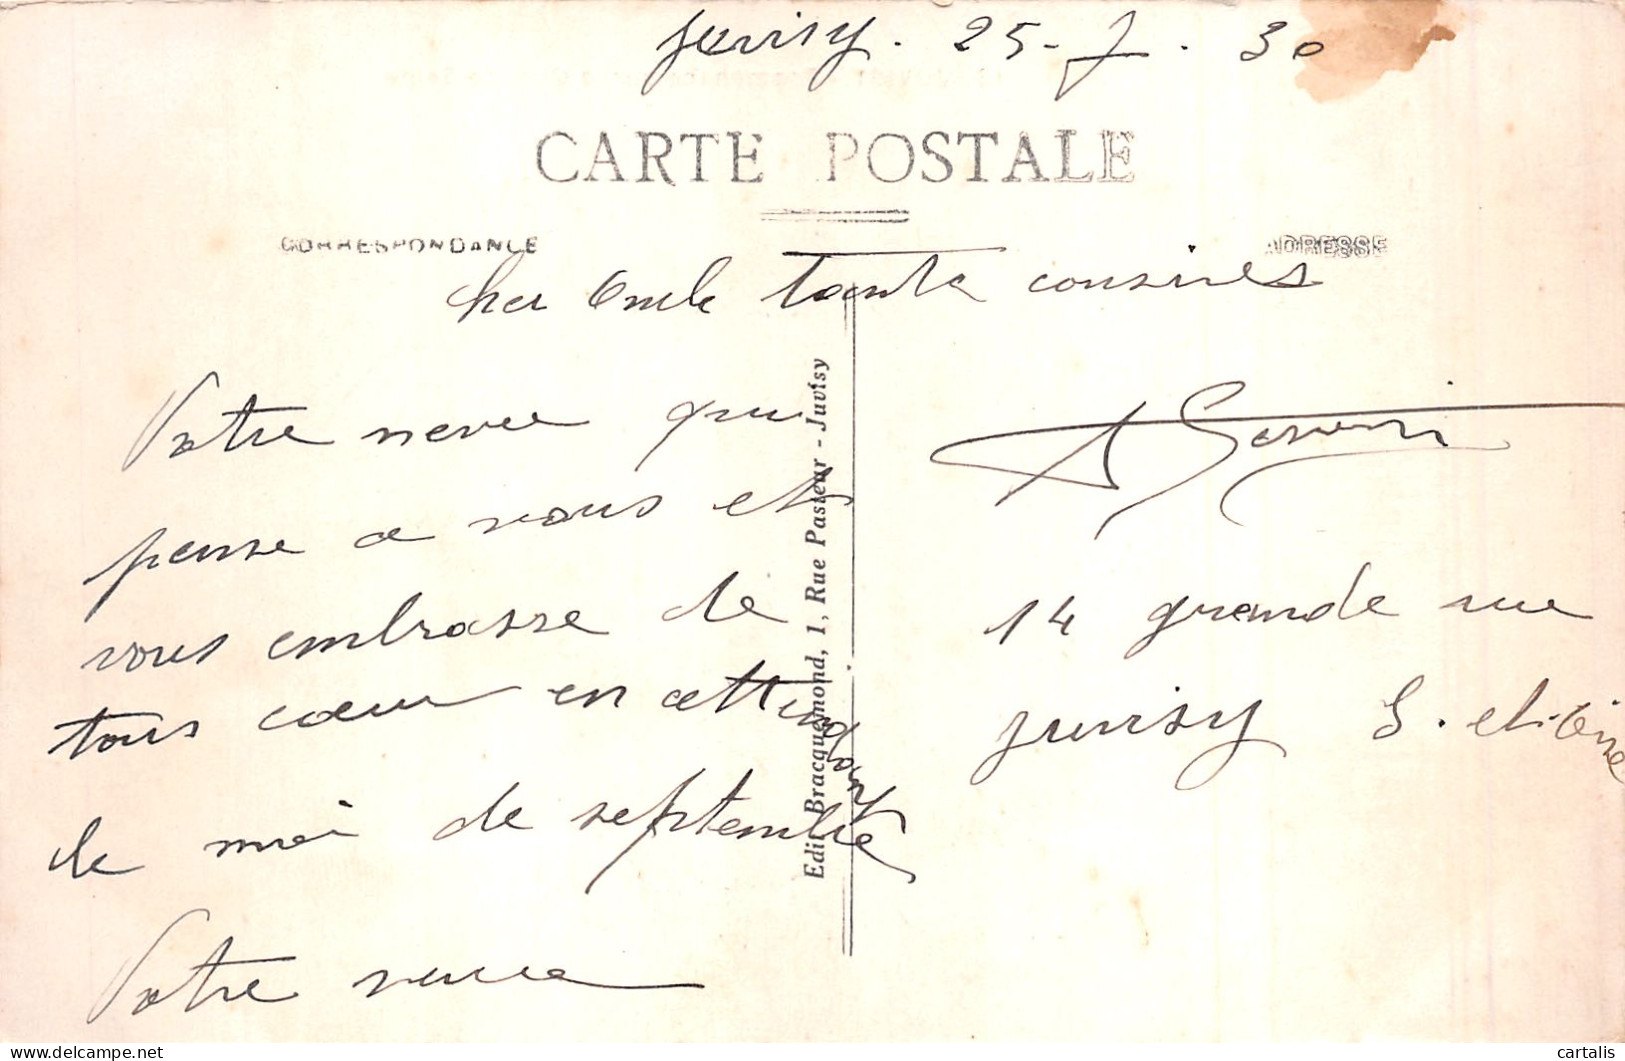 Juvisy. 25-7.30
CARTE POSTALE
CORRESPONDANCE
ADRESSE
Cher Oncle Tante cousines
Votre neveu qui
pense a vous et
vous embrasse de
tous cœur en attendant
le moi de septembre
Votre neveu
14 grande rue
Juvisy S. et. Oise
Edit. Bracquemond, 1, Rue Pasteur - Juvisy
delcampe.net
cartalis